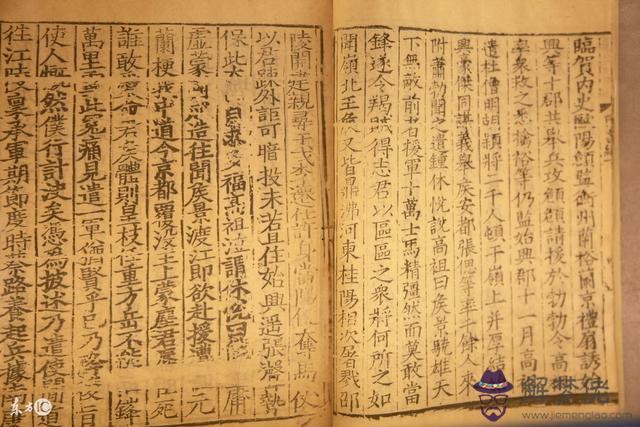 臨賀内史歐陽頠監衡州蘭裕蘭京禮扇誘
興等十郡共舉兵攻頠頠請援於勃勃令高
率衆救之悉擒裕等仍監始興郡十一月高
遣杜僧明胡穎將二千人頓于嶺上并厚結
興豪傑同謀義舉侯安都張偲等率千餘人來
附蕭勃聞之遣鍾休悅說高祖曰侯景驍雄天
下無敵前者援軍十萬士馬精彊然而莫敢當
鋒遂令羯賊得志君以區區之衆將何所之如
聞嶺北王侯又皆鼎沸河東桂陽相次屠戮邵
陵開建親尋干戈李遷仕許身當陽便奪馬仗
以君疎外詎可暗投未若且住始興遥張聲勢
保此太 自求多福高祖泣謂休悅曰 庸
虛蒙國成造往聞侯景渡江即欲赴援遭 元
蘭梗我中道今京都覆没主上蒙塵君辱 死
誰敢愛命君侯體則皇枝任重方岳不能 鋒
萬里雪此寃痛見遣一軍猶賢乎已乃 旨
使人慨然僕行計决矣憑為披述乃遣使間道
往江陵稟承軍期節度時蔡路養起兵據南
东方IC
解梦佬
www.jiemenglao.com